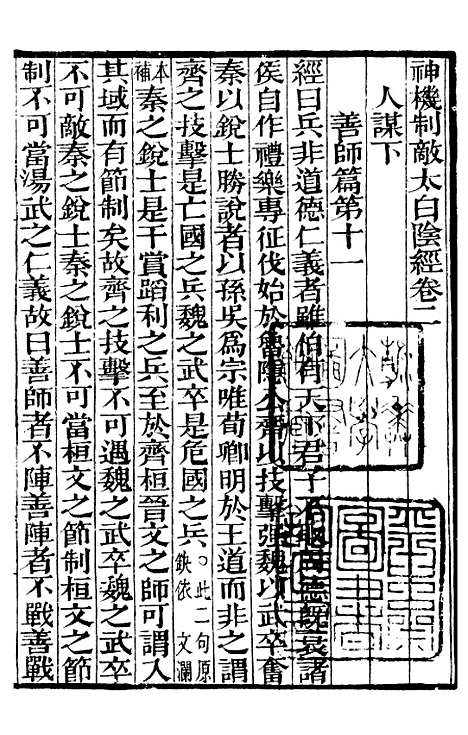 神機制敵太白陰經卷二
人謀下
善師篇第十一
經曰兵非道德仁義者雖伯有天下君子不取周德既衰諸
侯自作禮樂專征伐始於魯隱公齊以技擊强魏以武卒奮
秦以銳士勝說者以孫吳爲宗唯荀卿明於王道而非之謂
齊之技擊是亡國之兵魏之武卒是危國之兵○此二句原缺依文瀾
本補秦之銳士是干賞蹈利之兵至於齊桓晉文之師可謂入
其域而有節制矣故齊之技擊不可遇魏之武卒魏之武卒
不可敵秦之銳士秦之銳士不可當桓文之節制桓文之節
制不可當湯武之仁義故曰善師者不陣善陣者不戰善戰